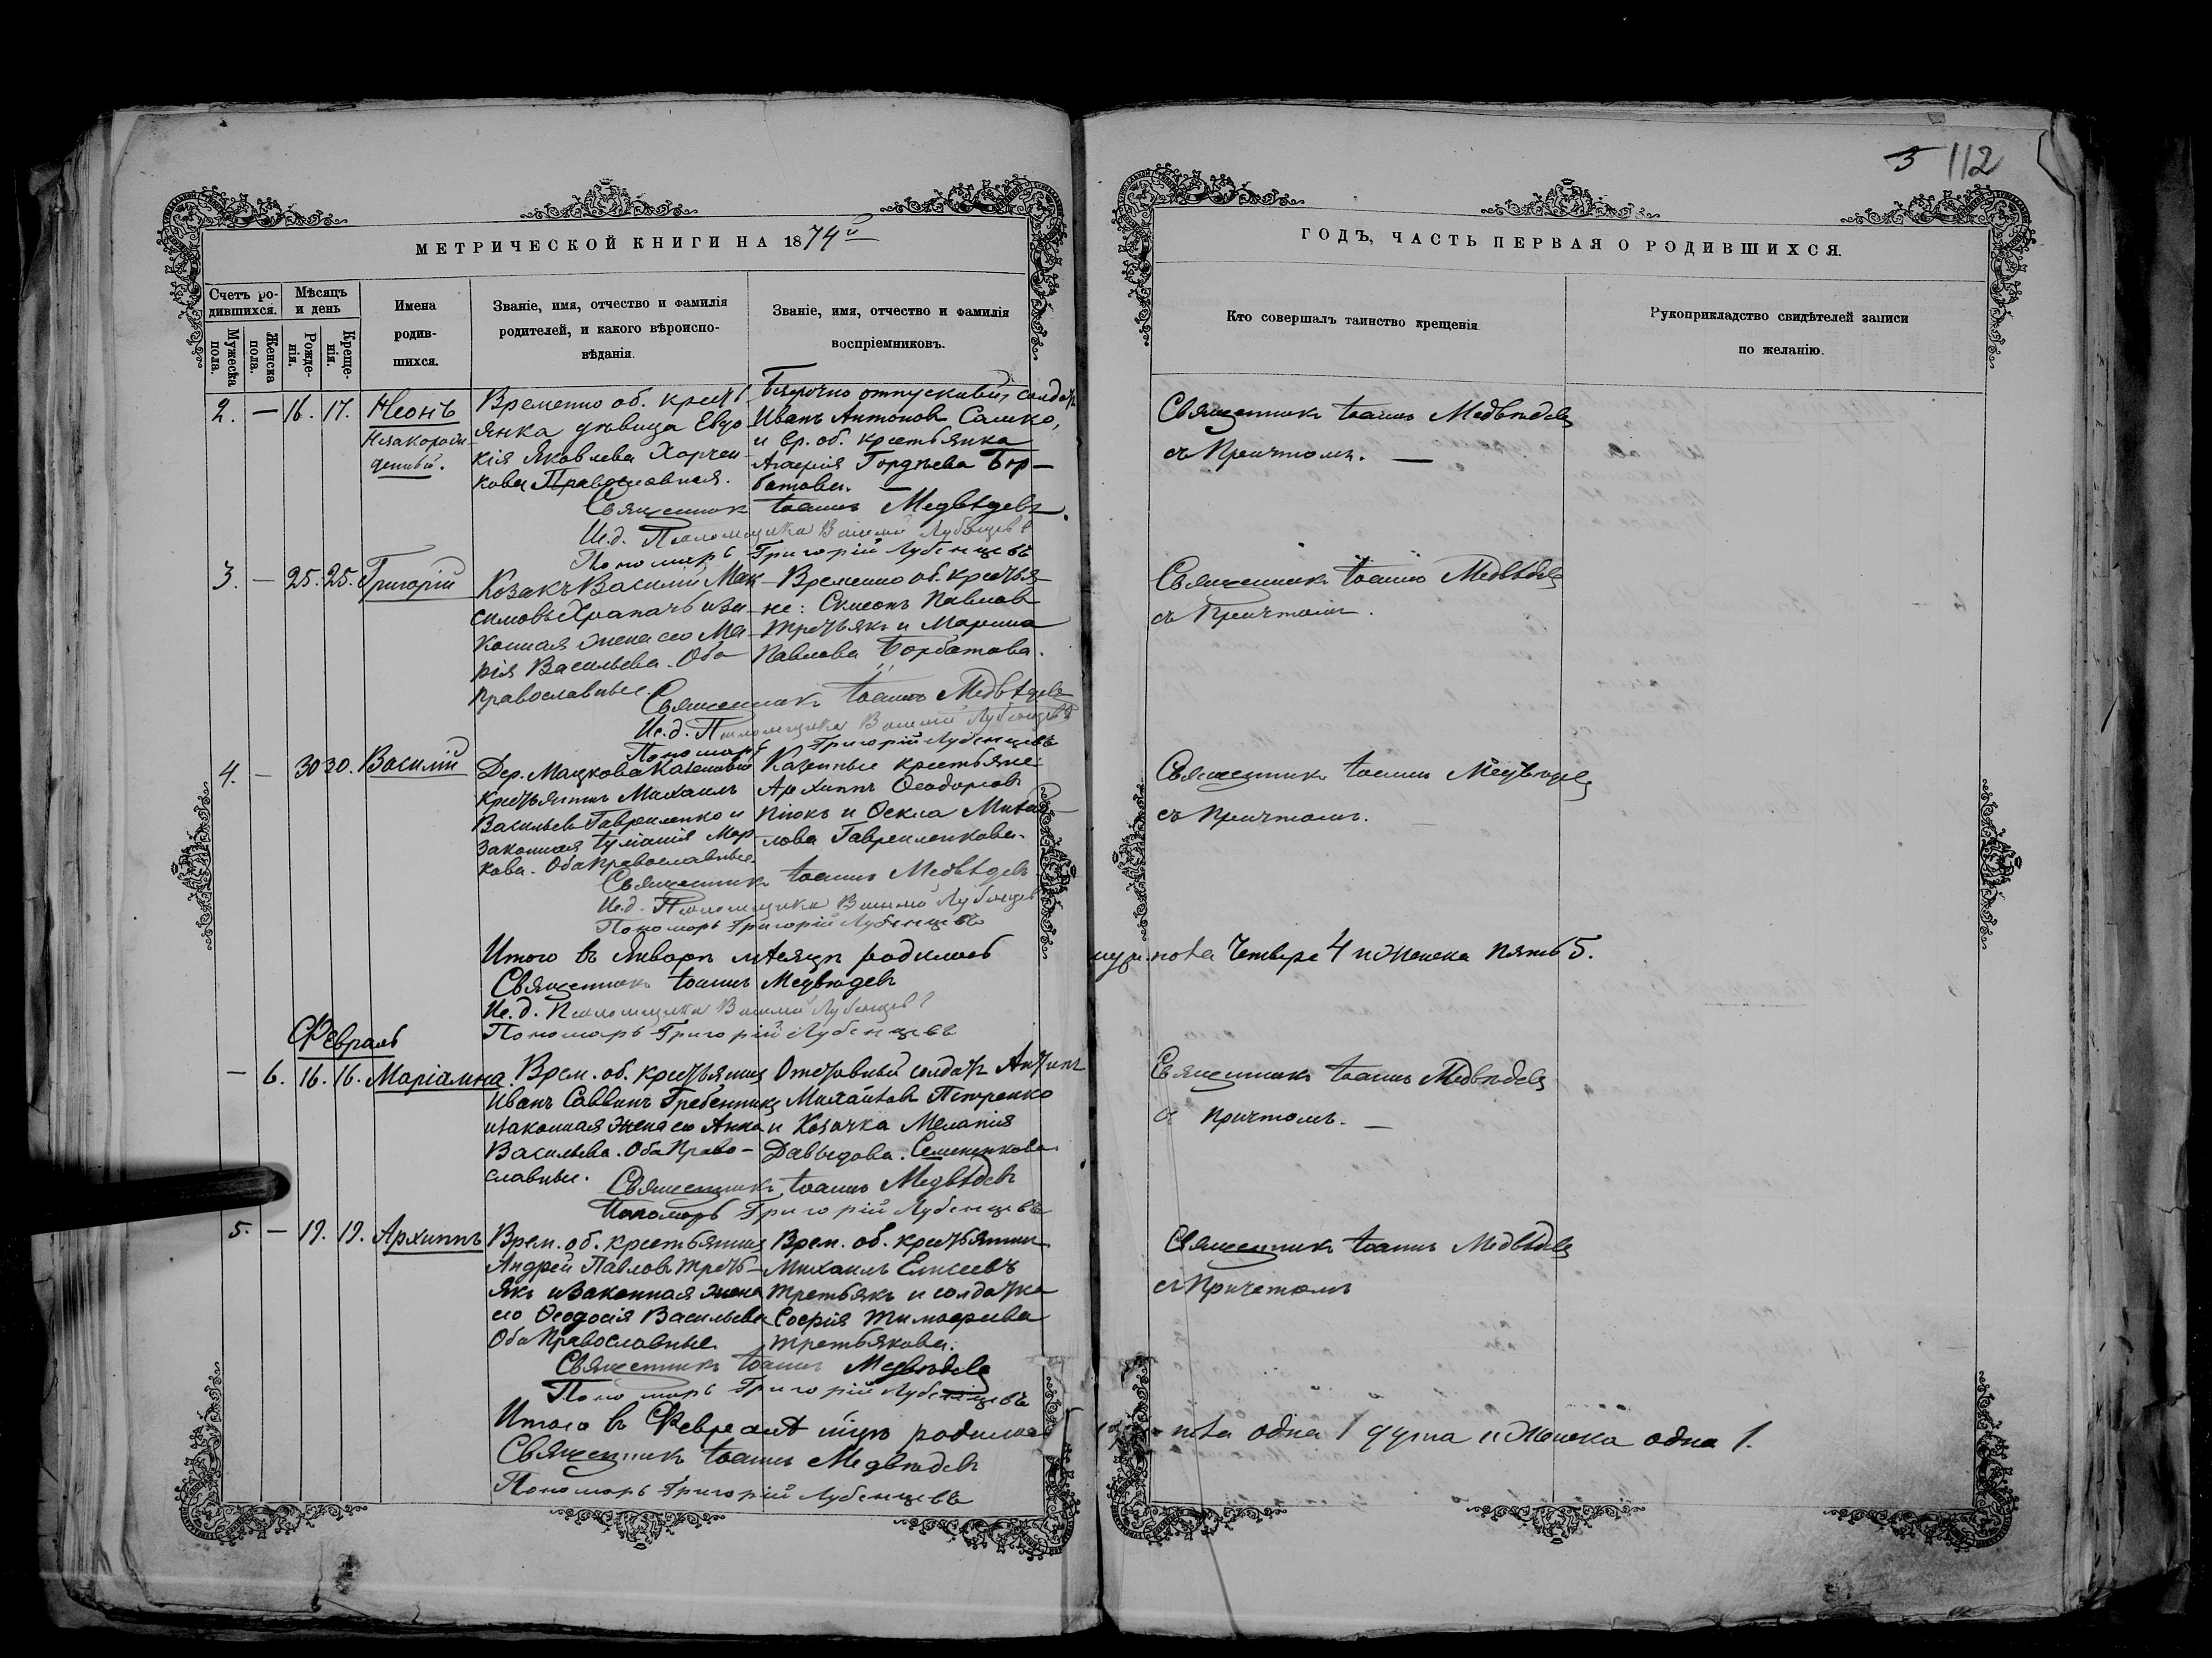 3 112
МЕТРИЧЕСКОЙ КНИГИ НА 1874й
ГОДЪ, ЧАСТЬ ПЕРВАЯ О РОДИВШИХСЯ.
Счетъ ро-
дившихся.
Мужеска
пола.
Женска
пола.
Мѣсяцъ
и день
Рожде-
нія.
Креще-
нія.
Имена
родив-
шихся.
Званіе, имя, отчество и фамилія
родителей, и какого вѣроиспо-
вѣданія.
Званіе, имя, отчество и фамилія
воспріемниковъ.
Кто совершалъ таинство крещенія
Рукоприкладство свидѣтелей записи
по желанію.
2. — 16. 17. Леонъ
Незаконорож
денный.
Временно об. кресть
янка дѣвица Евдо
кія Яковлева Харчен
кова Православная.
отпускной солдатъ
Иванъ Антоновъ Сашко,
и вр. об. крестьянка
Гордѣева Гор-
батова.
Священникъ Іоаннъ Медвѣдевъ
съ Причтомъ. —
Священник Іоаннъ Медвѣдевъ.
И.д. Псаломщика Василій Лубенцевъ
Пономарь Григорій Лубенцевъ
3. — 25. 25. Григорій
Козакъ Василій Мак
симовъ Храпачъ и за
конная жена его Ма
рія Васильева. Оба
православные.
Временно об. крестья
не: Павлов
Третьякъ и Марина
Павлова Горбатова.
Священникъ Іоаннъ Медвѣдевъ
съ Причтомъ.
Священникъ Іоаннъ Медвѣдевъ
И.д. Псаломщика Василій Лубенцевъ
Пономарь Григорій Лубенцевъ
4. — 30 30. Василій
Дер. Мацкова Казенный
крестьянинъ Михаилъ
Васильевъ Гавриленко и
законная Іуліанія Мар
кова. Оба православные.
Казенные крестьяне
Архиппъ Ѳеодоровъ
и Ѳекла Михай
лова Гавриленкова.
Священникъ Іоаннъ Медвѣдевъ
съ Причтомъ. —
Священникъ Іоаннъ Медвѣдевъ
И.д. Псаломщика Василій Лубенцевъ
Пономарь Григорій Лубенцевъ
Итого въ Январѣ мѣсяцѣ родилось
муж. пола Четыре 4 и женска пять 5.
Священникъ Іоаннъ Медвѣдевъ
И.д. Псаломщика Василій Лубенцевъ
Пономарь Григорій Лубенцевъ
Февраль
— 6. 16. 16. Маріамна.
Врем. об. крестьянинъ
Иванъ Саввинъ Гребенникъ
и законная жена его Анна
Васильева. Оба Право-
славные.
Отставный солдатъ Антипъ
Михайловъ Петренко
и Козачка Меланія
Давыдова Семененкова
Священникъ Іоаннъ Медвѣдевъ
съ причтомъ. —
Священникъ Іоаннъ Медвѣдевъ
Пономарь Григорій Лубенцевъ
5. — 19. 19. Архиппъ
Врем. об. крестьянинъ
Андрей Павловъ Треть-
якъ и законная жена
его Ѳеодосія Васильева
Оба Православные
Врем. об. крестьянинъ
Михаилъ Елисеевъ
Третьякъ и солдатка
Софія Тимофеева
Третьякова.
Священникъ Іоаннъ Медвѣдевъ
съ Причетомъ
Священникъ Іоаннъ Медвѣдевъ
Пономарь Григорій Лубенцевъ
Итого въ Февралѣ мцѣ родилось
пола одна 1 душа и женска одна 1.
Священникъ Іоаннъ Медвѣдевъ
Пономарь Григорій Лубенцевъ